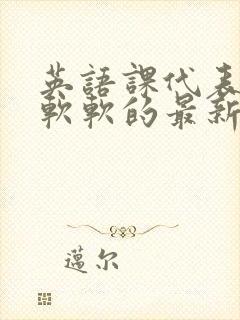 英語課代表
軟軟的最新
邁尔